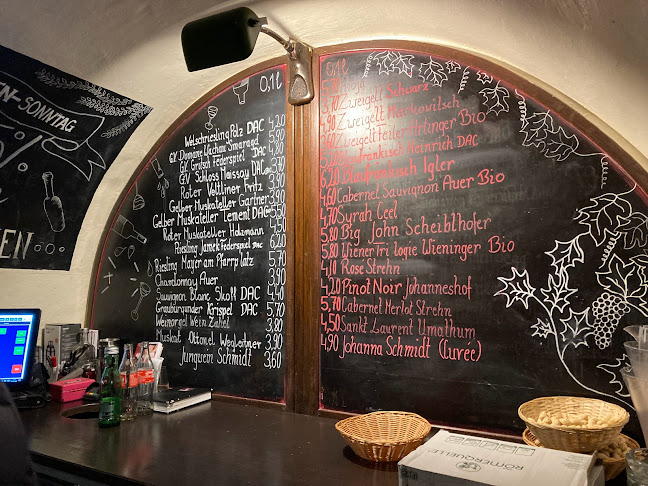 EN-SONNTAG
EN
0,1 l
Welschriesling Polz DAC 4,20
GV Domäne Wachau Smaragd
GV Gritsch Federspiel DAC
GV Schloss Maissau DAC
Roter Veltliner Fritz
Gelber Muskateller Gartner
Gelber Muskateller Tement DAC
Roter Muskateller Holzmann
Riesling Jamek Federspiel DAC 6,20
Riesling Mayer am Pfarrplatz 5,70
Chardonnay Auer 3,90
Sauvignon Blanc Skoff DAC 4,40
Grauburgunder Krispel DAC 5,70
Wein Zahel 3,80
Muskat Ottonel Weglehner 3,90
Jungwein Schmidt 3,60
0,1 l
Zweigelt Schwarz
Zweigelt Markowitsch
Zweigelt Bio
Blaufränkisch Heinrich DAC
6,20 Blaufränkisch Igler
4,60 Cabernet Sauvignon Auer Bio
4,70 Syrah Ceel
5,80 Big John Scheiblhofer
5,80 Wiener Trilogie Wieninger Bio
4,10 Rose Strehn
4,20 Pinot Noir Johanneshof
5,70 Cabernet Merlot Strehn
4,50 Sankt Laurent Umathum
4,90 Johanna Schmidt (Cuvée)
RÖMERQUELLE